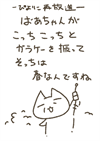 ーぴなりこ再放送ー
ばあちゃんが
こっち こっち と
ガラケーを振って
そっちは
春なんですね